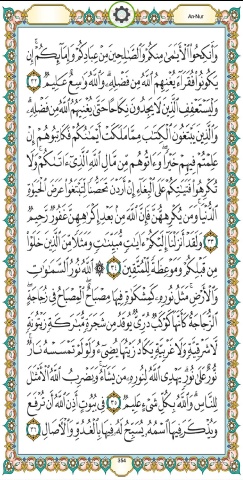 An-Nur
وَأَنكِحُوا۟ ٱلْأَيَـٰمَىٰ مِنكُمْ وَٱلصَّـٰلِحِينَ مِنْ عِبَادِكُمْ وَإِمَآئِكُمْ ۚ إِن
يَكُونُوا۟ فُقَرَآءَ يُغْنِهِمُ ٱللَّهُ مِن فَضْلِهِۦ ۗ وَٱللَّهُ وَٰسِعٌ عَلِيمٌ ٣٢
وَلْيَسْتَعْفِفِ ٱلَّذِينَ لَا يَجِدُونَ نِكَاحًا حَتَّىٰ يُغْنِيَهُمُ ٱللَّهُ مِن فَضْلِهِۦ ۗ
وَٱلَّذِينَ يَبْتَغُونَ ٱلْكِتَـٰبَ مِمَّا مَلَكَتْ أَيْمَـٰنُكُمْ فَكَاتِبُوهُمْ إِنْ
عَلِمْتُمْ فِيهِمْ خَيْرًا ۖ وَءَاتُوهُم مِّن مَّالِ ٱللَّهِ ٱلَّذِىٓ ءَاتَىٰكُمْ ۚ وَلَا
تُكْرِهُوا۟ فَتَيَـٰتِكُمْ عَلَى ٱلْبِغَآءِ إِنْ أَرَدْنَ تَحَصُّنًا لِّتَبْتَغُوا۟ عَرَضَ ٱلْحَيَوٰةِ
ٱلدُّنْيَا ۚ وَمَن يُكْرِههُّنَّ فَإِنَّ ٱللَّهَ مِنۢ بَعْدِ إِكْرَٰهِهِنَّ غَفُورٌ رَّحِيمٌ
٣٣ وَلَقَدْ أَنزَلْنَآ إِلَيْكُمْ ءَايَـٰتٍ مُّبَيِّنَـٰتٍ وَمَثَلًا مِّنَ ٱلَّذِينَ خَلَوْا۟
مِن قَبْلِكُمْ وَمَوْعِظَةً لِّلْمُتَّقِينَ ٣٤ ۞ ٱللَّهُ نُورُ ٱلسَّمَـٰوَٰتِ
وَٱلْأَرْضِ ۚ مَثَلُ نُورِهِۦ كَمِشْكَوٰةٍ فِيهَا مِصْبَاحٌ ۖ ٱلْمِصْبَاحُ فِى زُجَاجَةٍ ۖ
ٱلزُّجَاجَةُ كَأَنَّهَا كَوْكَبٌ دُرِّىٌّ يُوقَدُ مِن شَجَرَةٍ مُّبَـٰرَكَةٍ زَيْتُونَةٍ
لَّا شَرْقِيَّةٍ وَلَا غَرْبِيَّةٍ يَكَادُ زَيْتُهَا يُضِىٓءُ وَلَوْ لَمْ تَمْسَسْهُ نَارٌ ۚ
نُّورٌ عَلَىٰ نُورٍ ۗ يَهْدِى ٱللَّهُ لِنُورِهِۦ مَن يَشَآءُ ۚ وَيَضْرِبُ ٱللَّهُ ٱلْأَمْثَـٰلَ
لِلنَّاسِ ۗ وَٱللَّهُ بِكُلِّ شَىْءٍ عَلِيمٌ ٣٥ فِى بُيُوتٍ أَذِنَ ٱللَّهُ أَن تُرْفَعَ
وَيُذْكَرَ فِيهَا ٱسْمُهُۥ يُسَبِّحُ لَهُۥ فِيهَا بِٱلْغُدُوِّ وَٱلْـَٔاصَالِ ٣٦
354